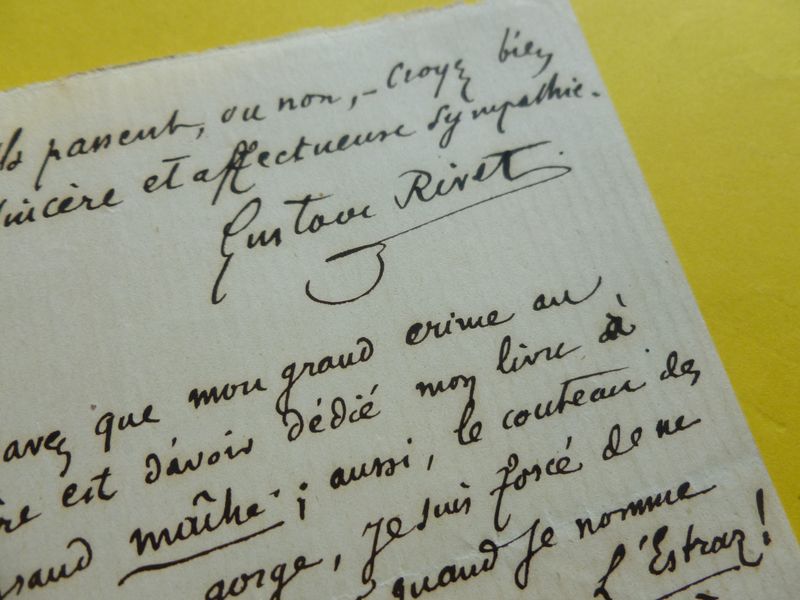 passent, ou non, - croyez bien
sincère et affectueuse sympathie.
Gustave Rivet.
avez que mon grand crime au
re est d'avoir dédié mon livre à
rand maître; aussi, le couteau des
gorge, je suis forcé de ne
quand je nomme
L'Estraz!